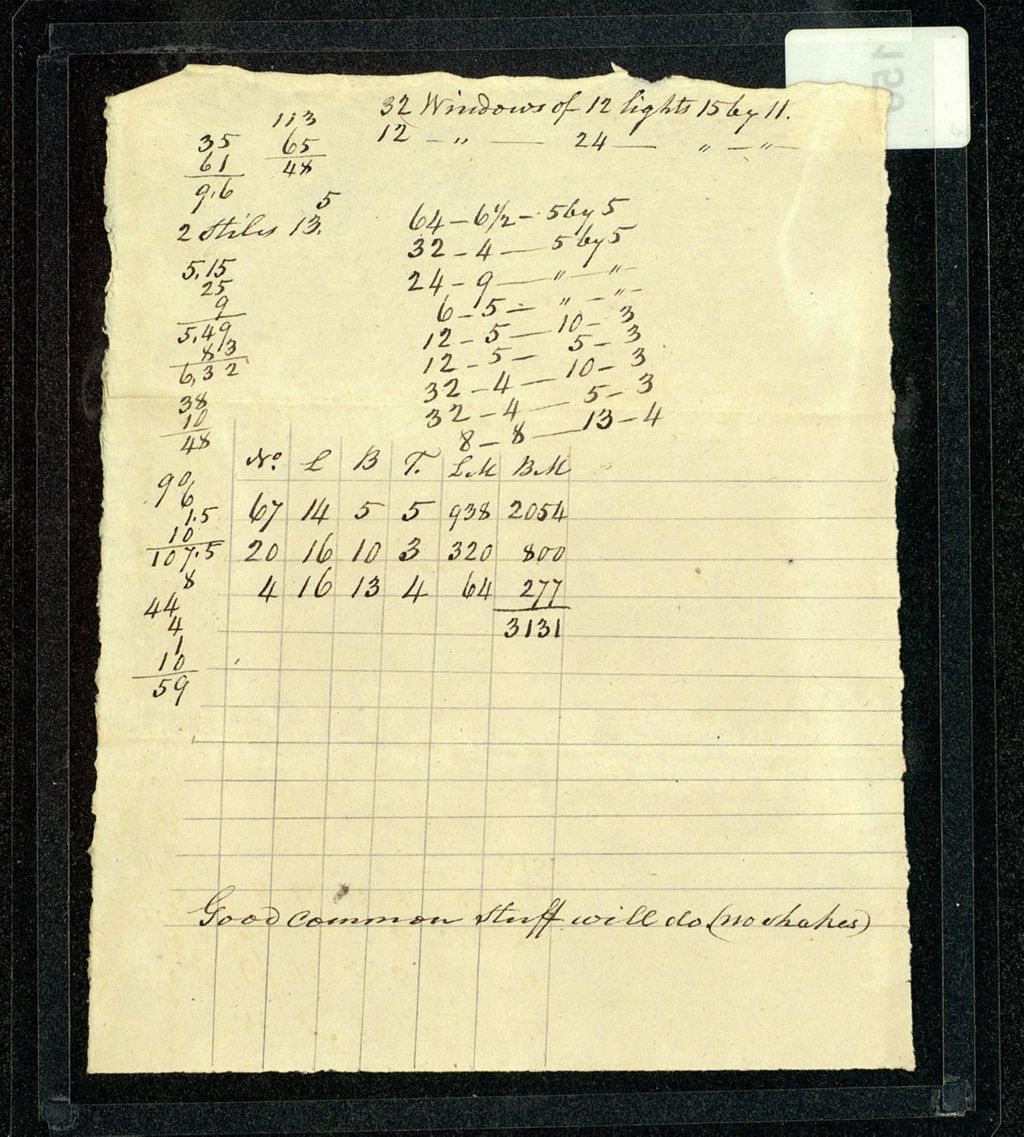 32 Windows of 12 lights 15 by 11.
12 — " — 24 — " — " —
113
65
48
35
61
9.6
5
2 Stiles 13.
5.15
25
9
5.49
83
6.32
38
10
48
90
6
1.5
10
107.5
8
44
4
1
10
59
64 – 6½ – 5 by 5
32 – 4 — 5 by 5
24 – 9 — " — "
6 – 5 – " – "
12 – 5 — 10 – 3
12 – 5 – 5 – 3
32 – 4 — 10 – 3
32 – 4 — 5 – 3
8 – 8 — 13 – 4
No. L B T. L.M B.M
67 14 5 5 938 2054
20 16 10 3 320 800
4 16 13 4 64 277
3131
Good common stuff will do. (no shakes)